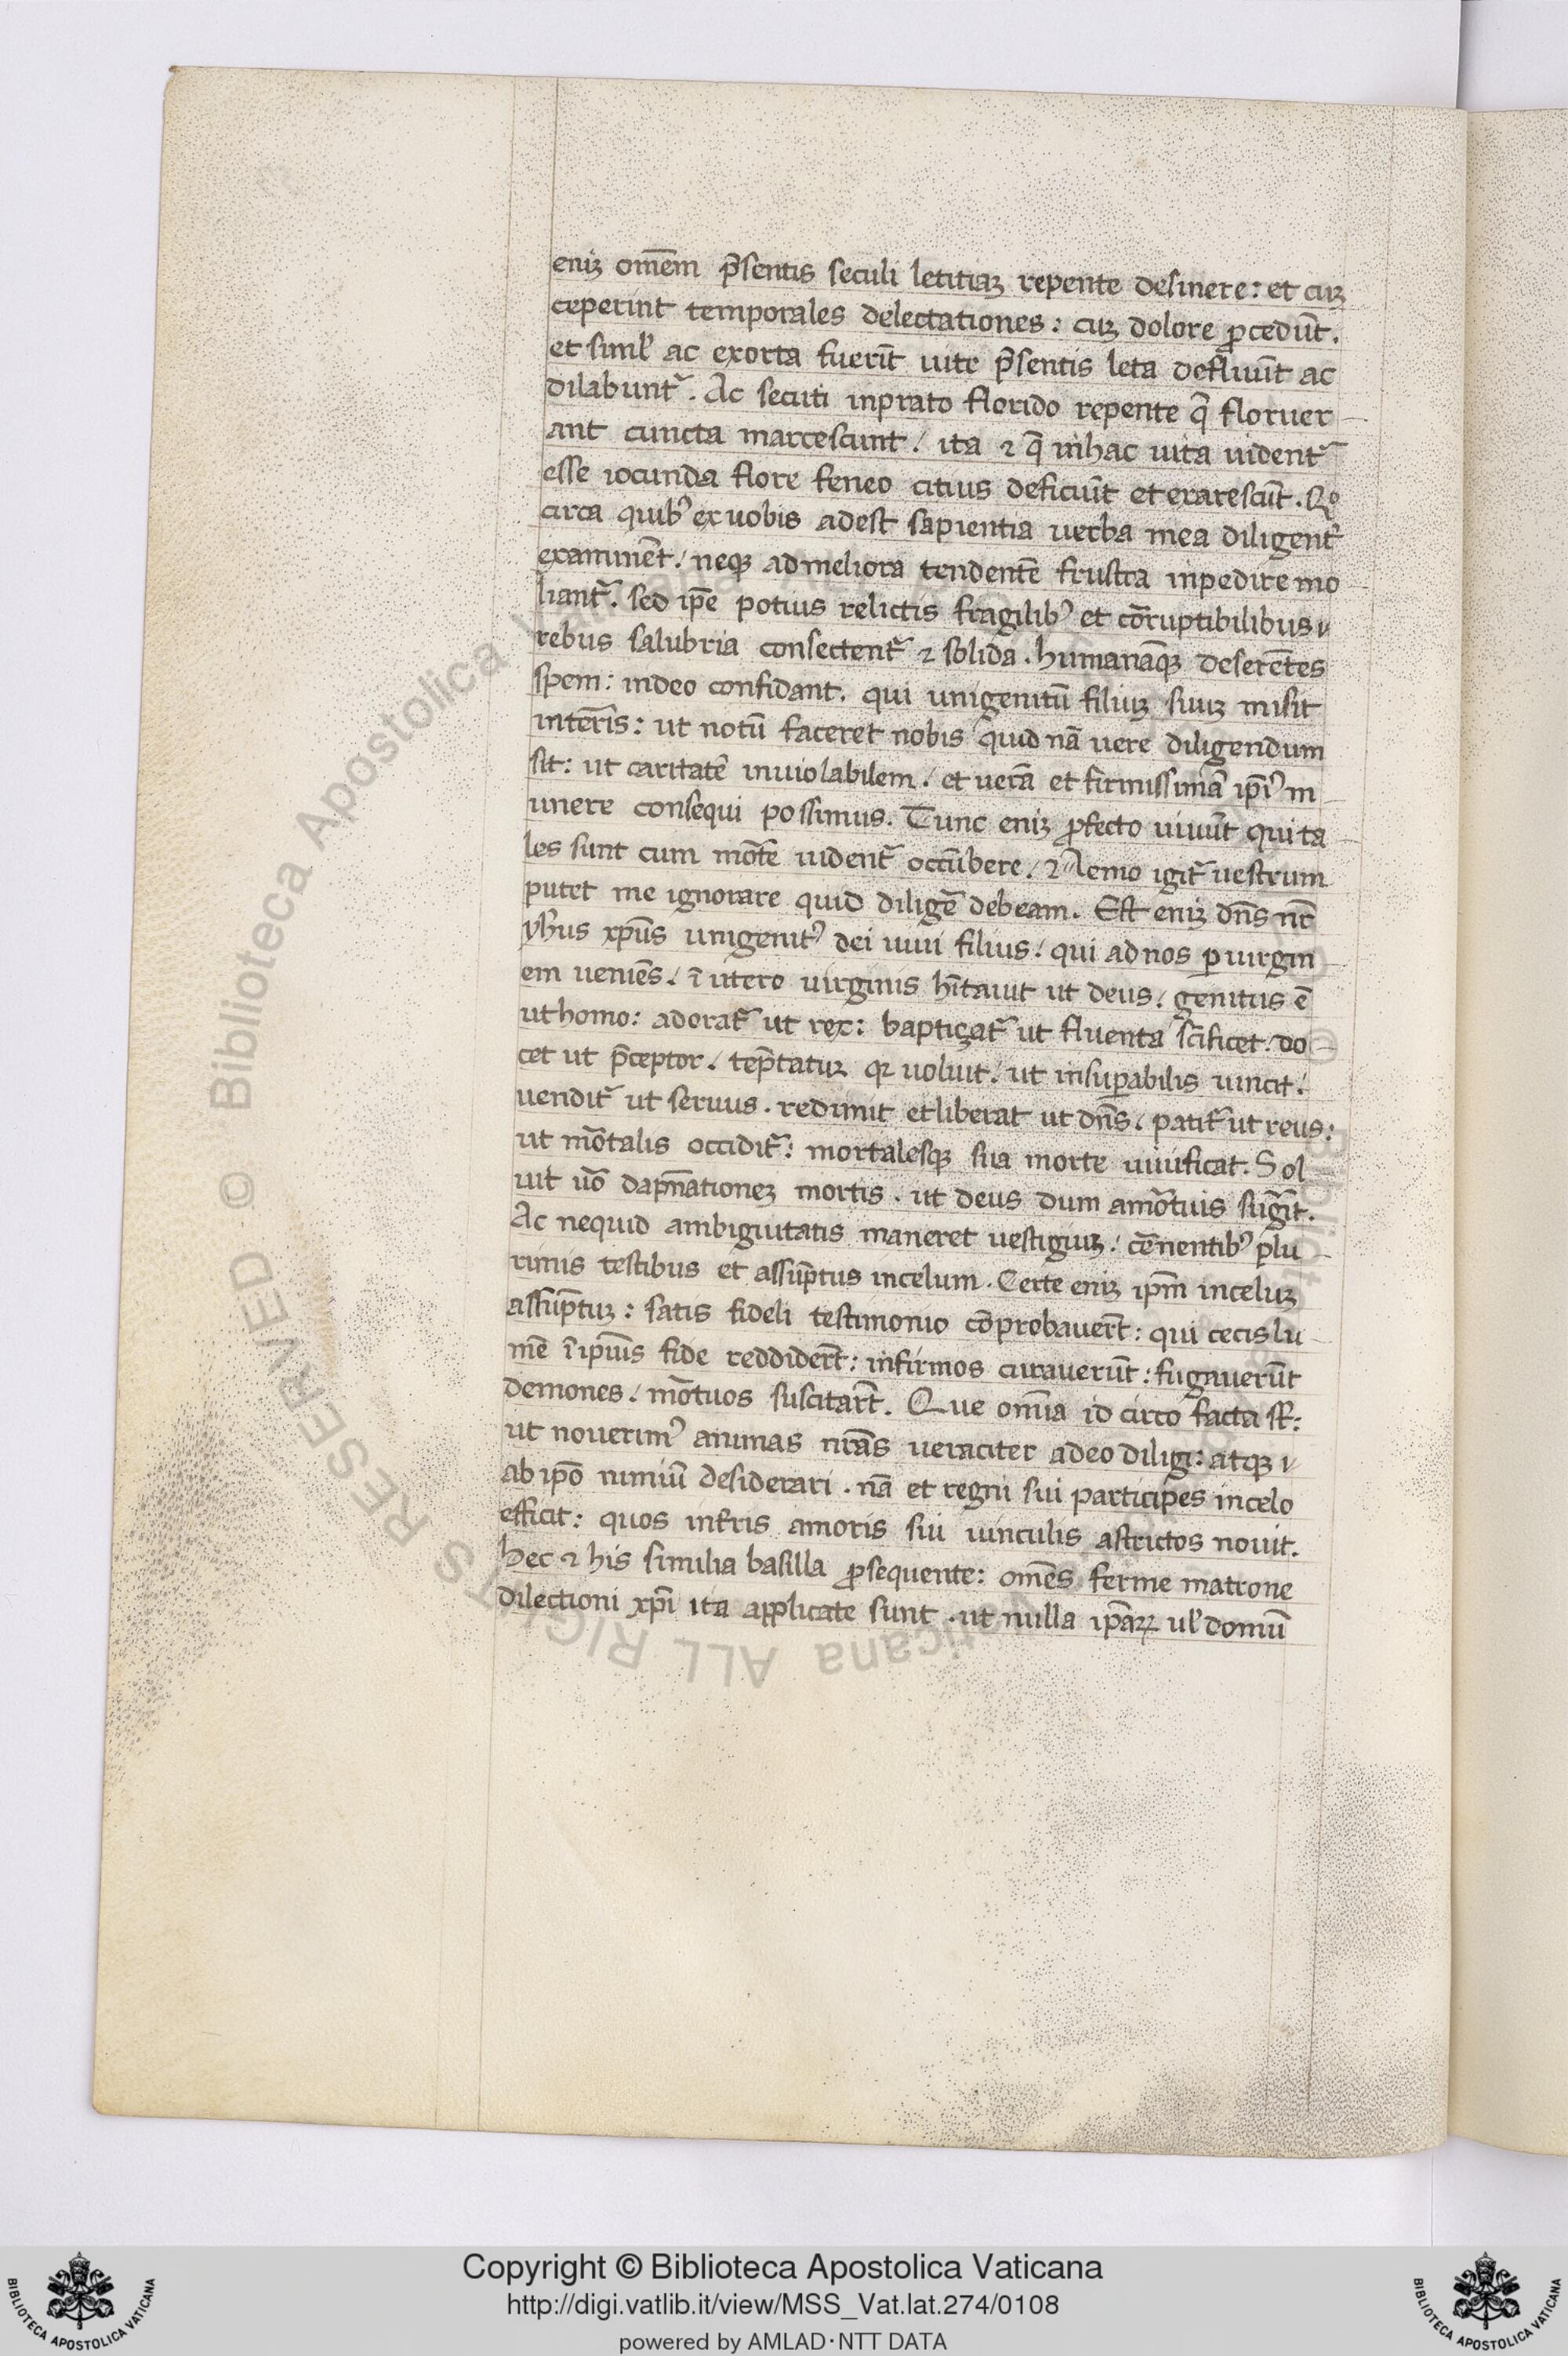 eniꝫ om̅em p̅sentis seculi letitiaꝫ repente desinere: et cuꝫ
ceperint temporales delectationes: cuꝫ dolore ꝓcedūt.
et siml̓ ac exorta fuerīt uite p̅sentis leta defluūt ac
dilabunt᷑. Ac secuti inprato florido repente q̄ floruer
ant cuncta marcescunt / ita ⁊ q̄ inhac uita uident᷑
esse iocunda flore feneo citius deficiūt et exarescūt. Qͦ
circa quibꝰ ex uobis adest sapientia uerba mea diligent᷑
examinēt / neqꝫ admeliora tendentē frustra inpedire mo
liant᷑. sed ip̅e potius relictis fragilibꝰ et cor̅ruptibilibus
rebus salubria consectent᷑ ⁊ solida. humanāqꝫ deserētes
spem: indeo confidant. qui unigenitū filiuꝫ suuꝫ misit
inter̅is: ut notū faceret nobis quid nā uere diligendum
sit: ut caritatē inuiolabilem / et uerā et firmissimā ip̅iꝰ m
unere consequi possimus. Tunc eniꝫ ꝓfecto uiuūt qui ta
les sunt cum mōte uident᷑ occūbere / ⁊ Nemo igit᷑ uestrum
putet me ignorare quid diligē debeam. Est eniꝫ dn̅s nr̅
yh̅us xp̅us unigenitꝰ dei uiui filius / qui ad nos ꝑ uirgin
em ueniēs / ī utero uirginis hītauit ut deus / genitus ē
ut homo: adorat᷑ ut rex: baptiçat᷑ ut fluenta sc̅ificet / do
cet ut p̅ceptor / tēptatur qꝛ uoluit / ut insuꝑabilis uincit /
uendit᷑ ut seruus. redimit et liberat ut dn̅s / patit᷑ ut reus:
ut mōtalis occidit᷑: mortalesqꝫ sua morte uiuificat. Sol
uit uō dapnātioneꝫ mortis. ut deus dum amōtuis sug̅it.
Ac nequid ambiguitatis maneret uestigiuꝫ / cēnentibꝰ plu
rimis testibus et assūptus incelum. Certe eniꝫ ip̅m inceluꝫ
assūptuꝫ: satis fideli testimonio cōprobauer̅t: qui cecis lu
mē ī ip̅ius fide reddider̅t: infirmos curauerūt: fugauerūt
demones / mōtuos suscitar̅t. Que om̅ia id circo facta st̅:
ut nouerimꝰ animas nr̅as ueraciter adeo diligi: atqꝫ
ab ip̅o nimiū desiderari. nā et regni sui participes incelo
efficit: quos int̅ris amoris sui uinculis astrictos nouit.
hec ⁊ his similia basilla ꝓsequente: om̅es ferme matrone
dilectioni xp̅i ita applicate sunt. ut nulla ip̅aꝝ ul̓ domū
Copyright © Biblioteca Apostolica Vaticana
http://digi.vatlib.it/view/MSS_Vat.lat.274/0108
powered by AMLAD·NTT DATA